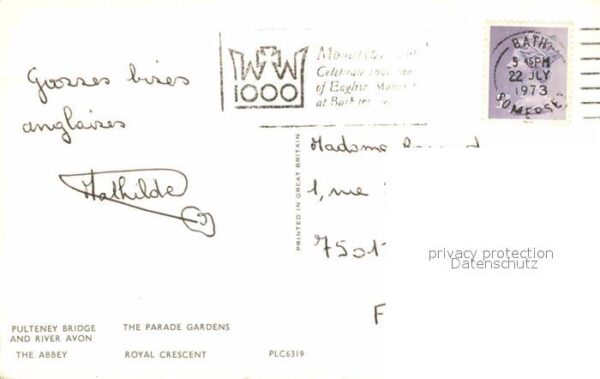 Grosses bises
anglaises
Mathilde
1000
Celebrate
of English
at Bath
BATH
5 45PM
22 JLY
1973
SOMERSET
PRINTED IN GREAT BRITAIN
Madame
1, rue
7501
F
privacy protection
Datenschutz
PULTENEY BRIDGE
AND RIVER AVON
THE PARADE GARDENS
THE ABBEY
ROYAL CRESCENT
PLC6319